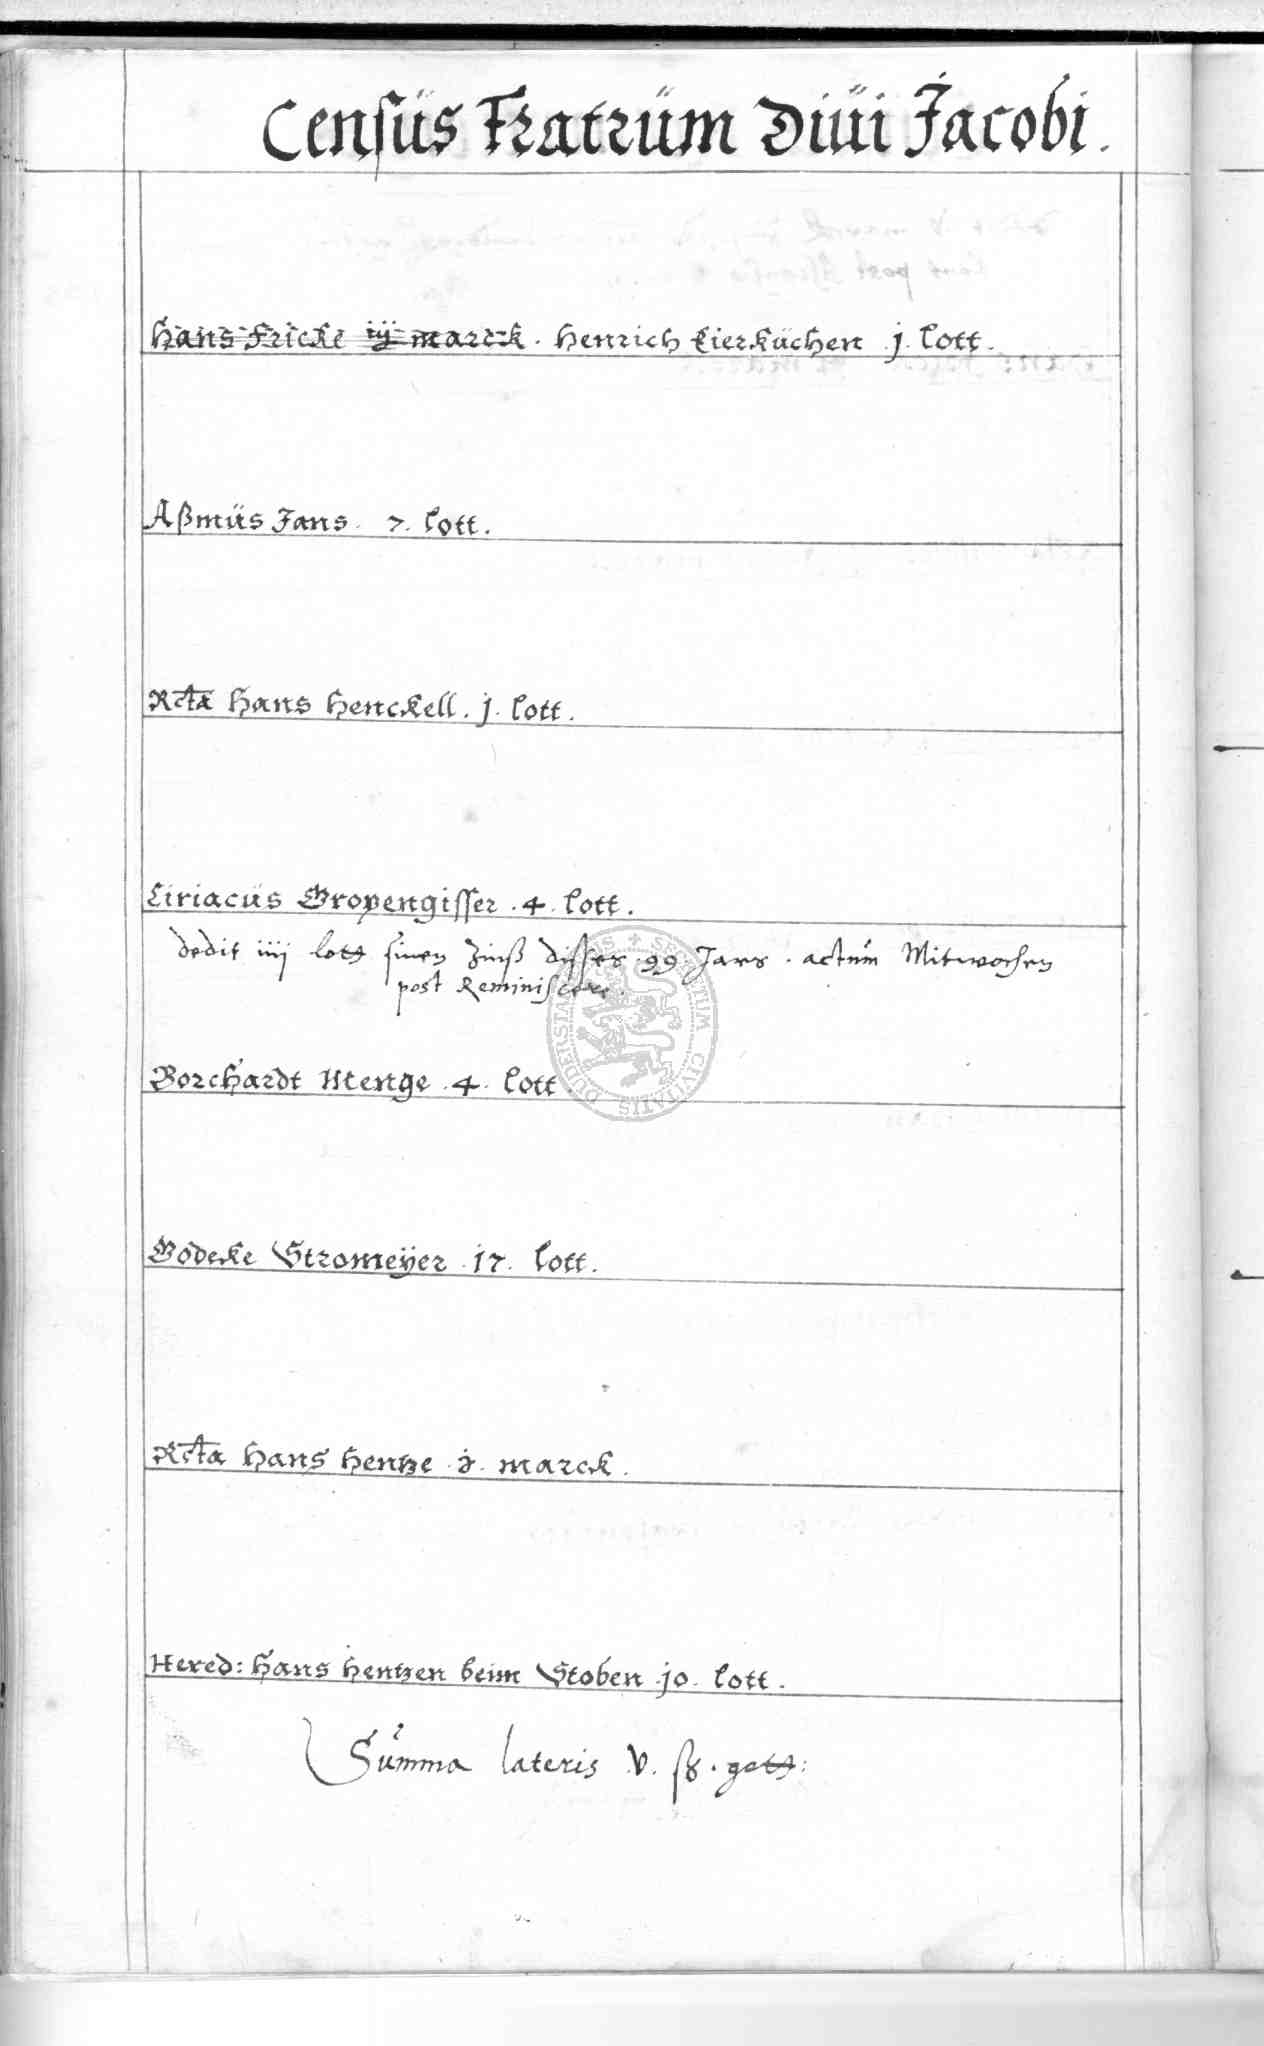 Censüs Fratrüm Diüi Jacobi.
Hans Fricke iij marck. Henrich Eierküchen .j. lott.
Aßmüs Jans. 7. lott.
Rcta Hans Henckell. j. lott.
Ciriacüs Gropengisser .4. lott.
dedit iiij lott sinen Zinß disses .99. Jars. actum Mitwochen
post Reminiscere.
Borchardt Menge .4. lott
Godecke Stromeÿer .17. lott.
Rcta Hans Hentze . marck.
Hered: Hans Hentzen beim Stoben .jo. lott.
Summa lateris V.
SIGILLUM CIVITATIS DUDERSTA